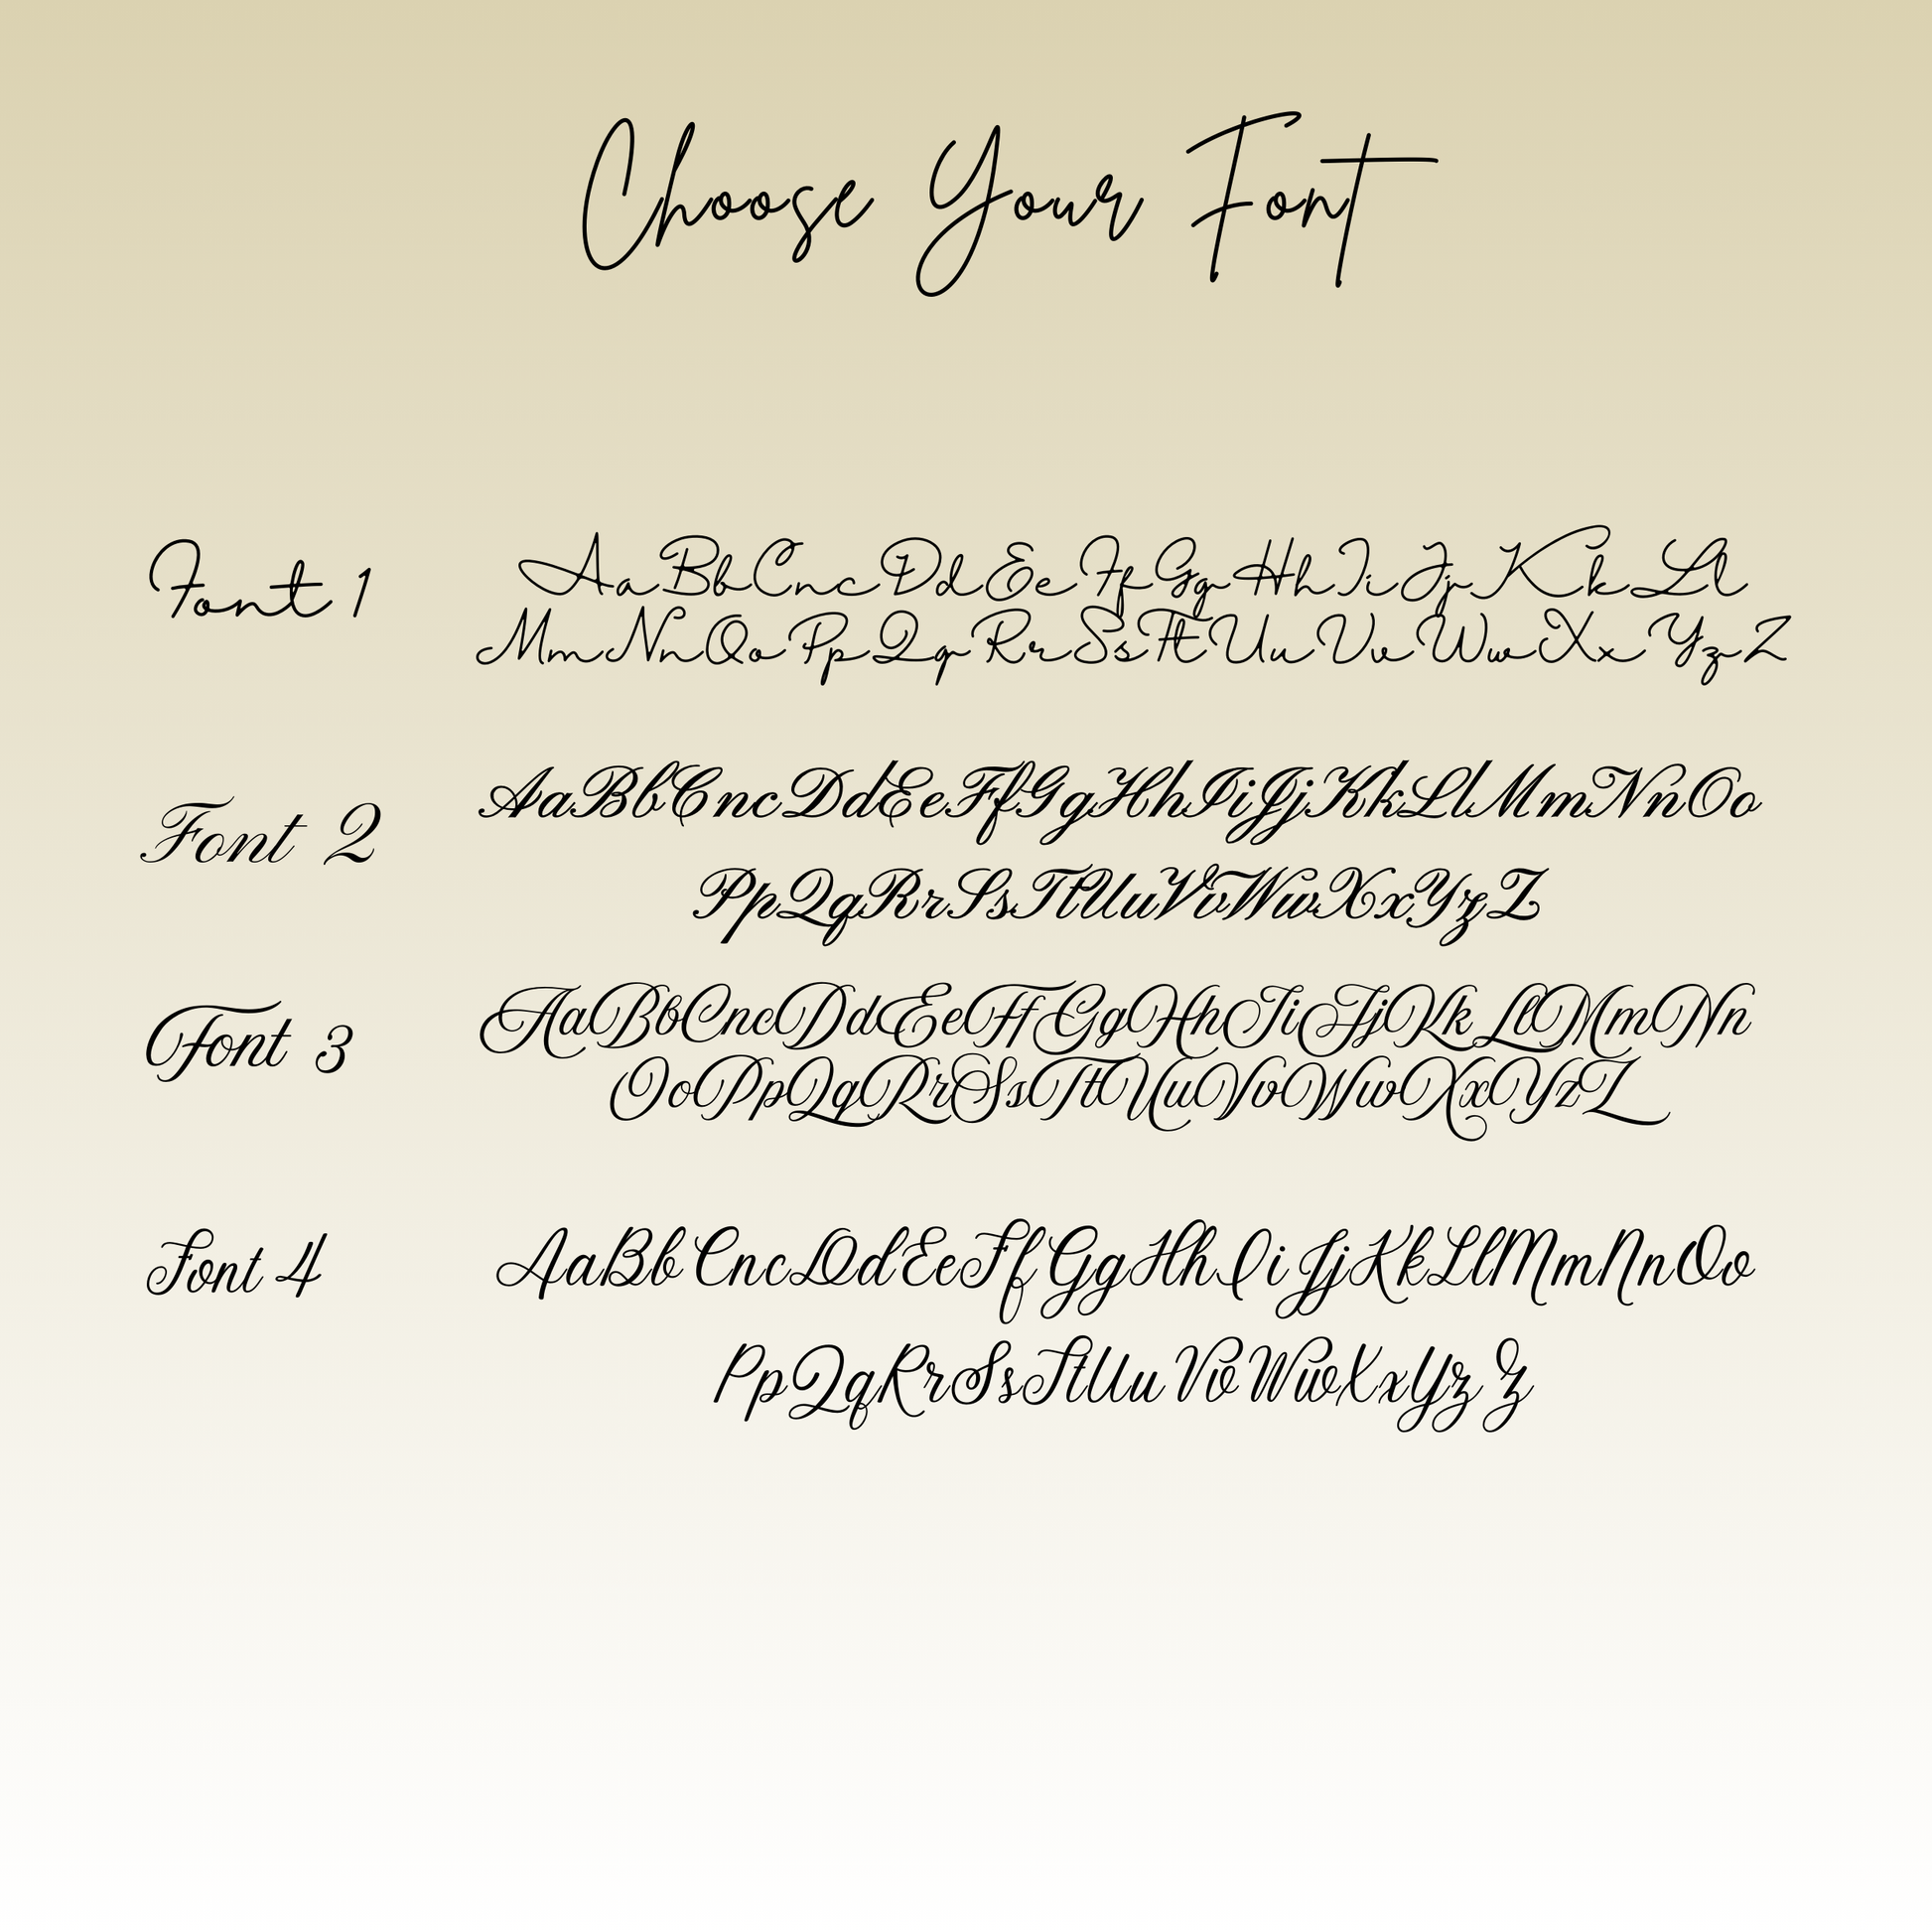 Choose Your Font
Font 1
AaBbCncDdEeFfGgHhIiJjKkLl
MmNnOoPpQqRrSsTtUuVvWwXxYzZ
Font 2
AaBbCncDdEeFfGgHhIiJjKkLlMmNnOo
PpQqRrSsTtUuVvWwXxYzZ
Font 3
AaBbCncDdEeFfGgHhIiJjKkLlMmNn
OoPpQqRrSsTtUuVvWwXxYzZ
Font 4
AaBbCncDdEeFfGgHhIiJjKkLlMmNnOo
PpQqRrSsTtUuVvWwXxYzZ